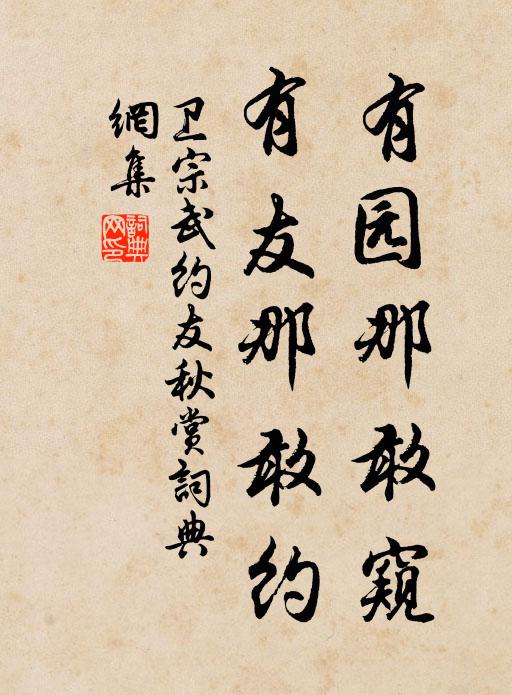 有园那敢窥
有友那敢约
卫宗武约友秋赏詞典
網集
詞典
网印